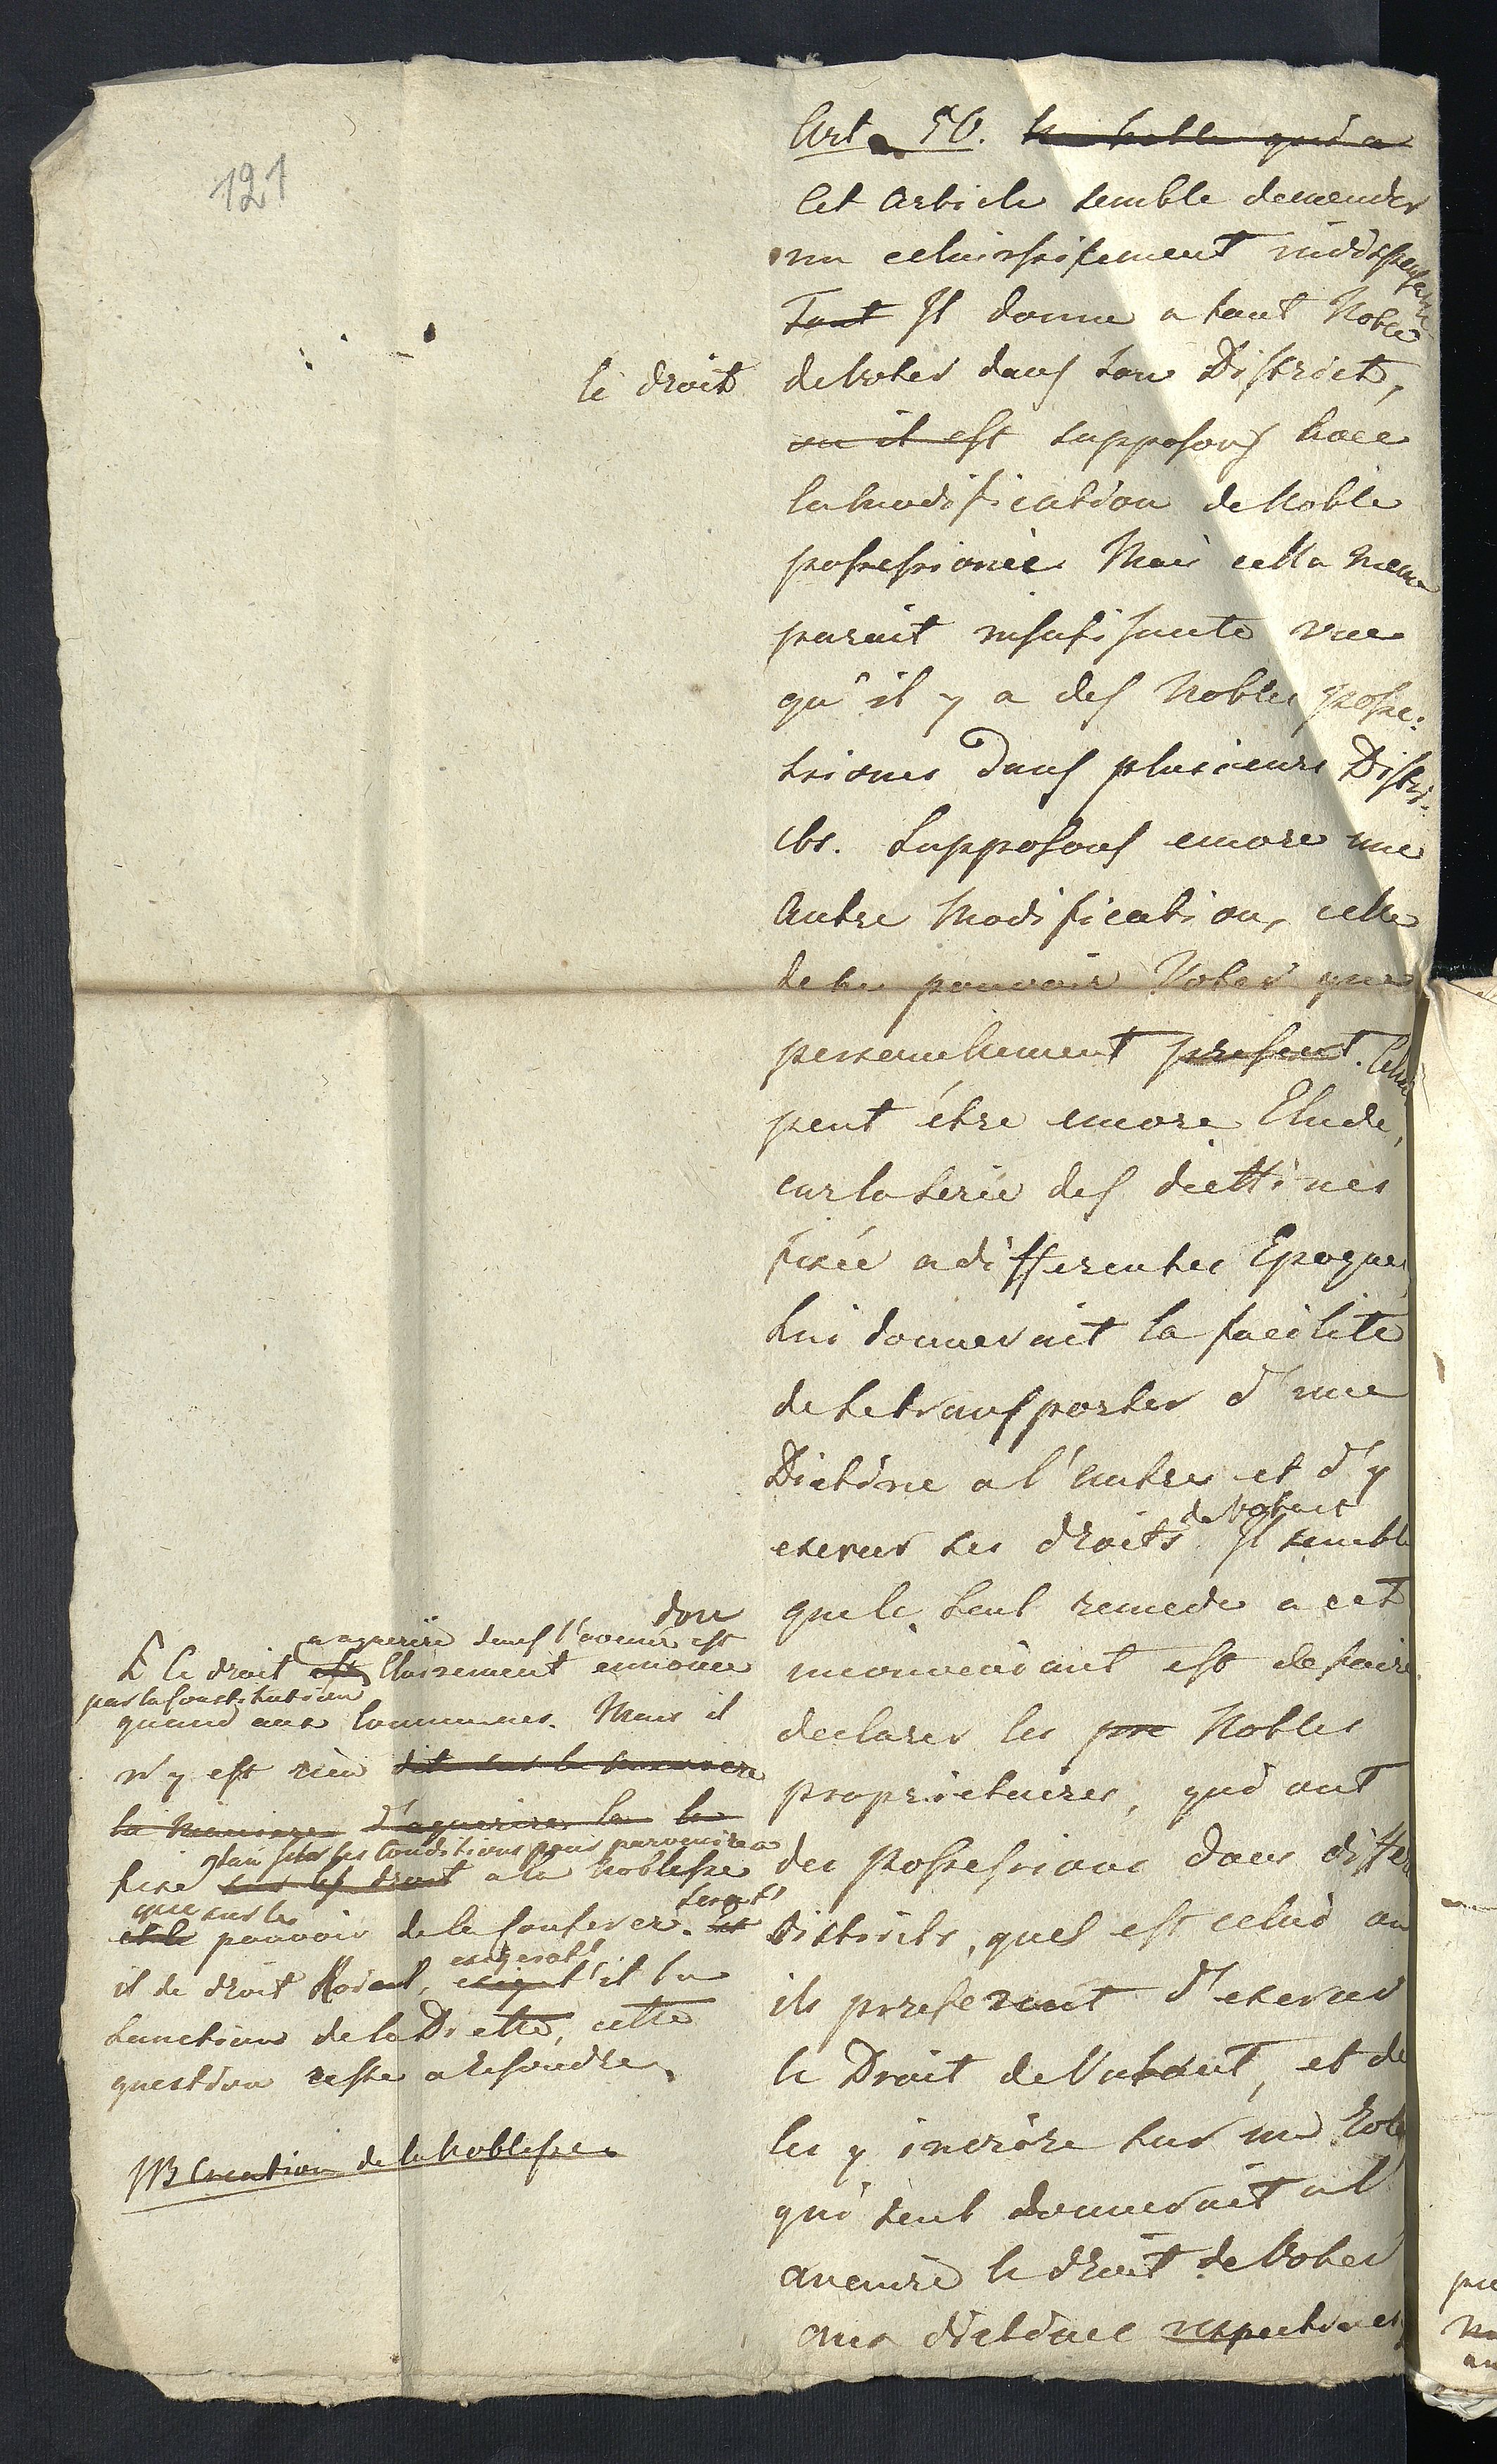 121
Art. 56. le noble qui a
Cet Article semble demender
un eclaircissement indispensable
Tout Il donne a tout Noble
le droit
de Voter dans son District,
ou il est supposons avec
la modification de Noble
possessionée Mais cella meme
parait insufisante vue
qu'il y a des Nobles posse:
siones dans plusieurs Distri:
cts. Supposons encore une
Autre Modification, celle
de ne pouvoir Voter que
personellement present. Cela
peut étre encore Elude,
car la serie des diettines
fixée a differentes Epoques
Lui donnerait la facilité
de se transporter d'une
Dietine a l'autre et d'y
de Votant
exercer ses droits Il semble
que le seul remede a cet
inconveniant est de faire
declarer les pro Nobles
proprietaires, qui ont
des possessions dans differ
Districts, quel est celui ou
ils preferent d'exercer
le Droit de Votant, et de
les y inscrire sur un Role
qui seul donnerait a l'
avenire le droit de Voter
aux dietines respectives
donc
a aquerire dans l'avenir est
Le droit est Clairement ennoncé
par la Constitution
quand aux Communes. Mais il
n'y est rien dit sur la maniere
la Maniere d'aquerire la
ses conditions pour parvenire a
fixé sur les droit a la Noblesse
que sur le
et le pouvoir de la Conferer.
serat
est
il de droit Roial,
exigerat
exigat il la
sanction de la Diette, cette
question reste a resoudre.
NB Creation de la Noblesse.